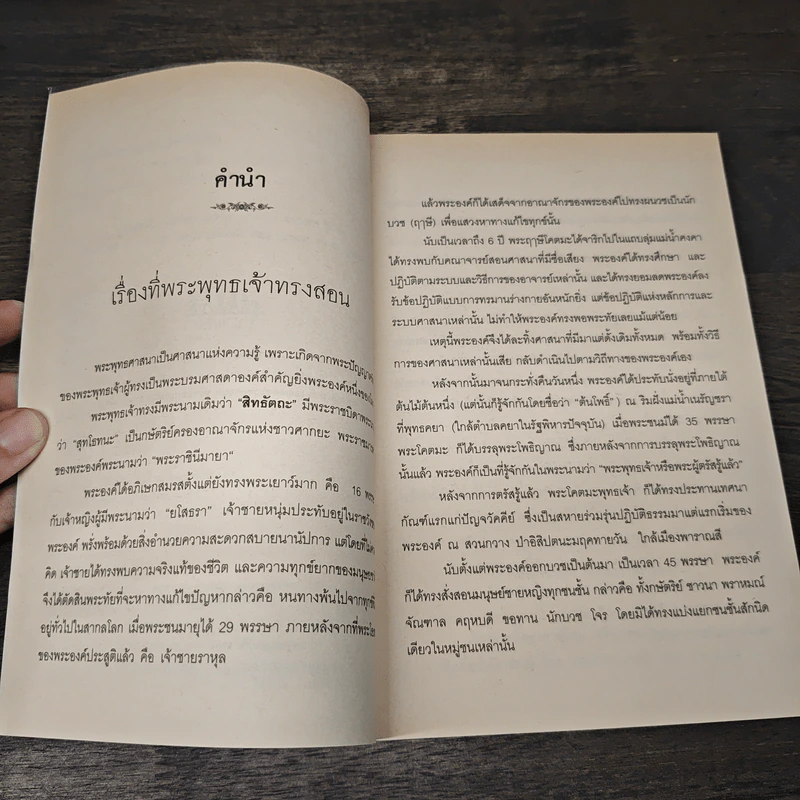 คำนำ
เรื่องที่พระพุทธเจ้าทรงสอน
พระพุทธศาสนาเป็นศาสนาแห่งความรู้ เพราะเกิดจากพระปัญญา
ของพระพุทธเจ้าผู้ทรงเป็นพระบรมศาสดาองค์สำคัญยิ่งพระองค์หนึ่งของ
พระพุทธเจ้าทรงมีพระนามเดิมว่า “สิทธัตถะ” มีพระราชบิดาพระ
ว่า “สุทโธทนะ” เป็นกษัตริย์ครองอาณาจักรแห่งชาวศากยะ พระราช
ของพระองค์พระนามว่า “พระราชินีมายา”
พระองค์ได้อภิเษกสมรสตั้งแต่ยังทรงพระเยาว์มาก คือ 16
กับเจ้าหญิงผู้มีพระนามว่า “ยโสธรา” เจ้าชายหนุ่มประทับอยู่ใน
พระองค์ พรั่งพร้อมด้วยสิ่งอำนวยความสะดวกสบายนานัปการ แต่โดยที่
คิด เจ้าชายได้ทรงพบความจริงแท้ของชีวิต และความทุกข์ยากของ
จึงได้ตัดสินพระทัยที่จะหาทางแก้ไขปัญหากล่าวคือ หนทางพ้นไปจาก
อยู่ทั่วไปในสากลโลก เมื่อพระชนมายุได้ 29 พรรษา ภายหลังจากที่
ของพระองค์ประสูติแล้ว คือ เจ้าชายราหุล
แล้วพระองค์ก็ได้เสด็จจากอาณาจักรของพระองค์ไปทรงผนวชเป็นนัก
บวช (ฤาษี) เพื่อแสวงหาทางแก้ไขทุกข์นั้น
นับเป็นเวลาถึง 6 ปี พระฤาษีโคตมะได้จาริกไปในแถบลุ่มแม่น้ำคงคา
ได้ทรงพบกับคณาจารย์สอนศาสนาที่มีชื่อเสียง พระองค์ได้ทรงศึกษา และ
ปฏิบัติตามระบบและวิธีการของอาจารย์เหล่านั้น และได้ทรงยอมลดพระองค์ลง
รับข้อปฏิบัติแบบการทรมานร่างกายอันหนักยิ่ง แต่ข้อปฏิบัติแห่งหลักการและ
ระบบศาสนาเหล่านั้น ไม่ทำให้พระองค์ทรงพอพระทัยเลยแม้แต่น้อย
เหตุนี้พระองค์จึงได้ละทิ้งศาสนาที่มีมาแต่ดั้งเดิมทั้งหมด พร้อมทั้งวิธี
การของศาสนาเหล่านั้นเสีย กลับดำเนินไปตามวิถีทางของพระองค์เอง
หลังจากนั้นมาจนกระทั่งคืนวันหนึ่ง พระองค์ได้ประทับนั่งอยู่ที่ภายใต้
ต้นไม้ต้นหนึ่ง (แต่นั้นก็รู้จักกันโดยชื่อว่า “ต้นโพธิ์”) ณ ริมฝั่งแม่น้ำเนรัญชรา
ที่พุทธคยา (ใกล้ตำบลคยาในรัฐพิหารปัจจุบัน) เมื่อพระชนม์ได้ 35 พรรษา
พระโคตมะ ก็ได้บรรลุพระโพธิญาณ ซึ่งภายหลังจากการบรรลุพระโพธิญาณ
นั้นแล้ว พระองค์ก็เป็นที่รู้จักกันในพระนามว่า “พระพุทธเจ้าหรือพระผู้ตรัสรู้แล้ว”
หลังจากการตรัสรู้แล้ว พระโคตมะพุทธเจ้า ก็ได้ทรงประทานเทศนา
กัณฑ์แรกแก่ปัญจวัคคีย์ ซึ่งเป็นสหายร่วมรุ่นปฏิบัติธรรมมาแต่แรกเริ่มของ
พระองค์ ณ สวนกวาง ป่าอิสิปตนะมฤคทายวัน ใกล้เมืองพาราณสี
นับตั้งแต่พระองค์ออกบวชเป็นต้นมา เป็นเวลา 45 พรรษา พระองค์
ก็ได้ทรงสั่งสอนมนุษย์ชายหญิงทุกชนชั้น กล่าวคือ ทั้งกษัตริย์ ชาวนา พราหมณ์
จัณฑาล คฤหบดี ขอทาน นักบวช โจร โดยมิได้ทรงแบ่งแยกชนชั้นสักนิด
เดียวในหมู่ชนเหล่านั้น